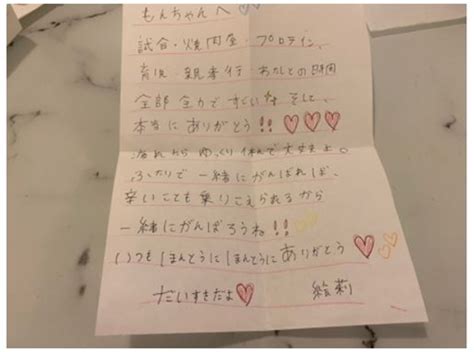 もんちゃんへ♡
試合・焼肉屋・プロテイン、
育児・親孝行 わたしとの時間
全部全力ですごいな そして、
本当にありがとう!!♡♡♡
疲れたらゆっくり休んで大丈夫よ。
ふたりで一緒にがんばれば、
辛いことも乗りこえられるから
一緒にがんばろうね!!♡♡
いつもほんとうにほんとうにありがとう♡♡♡
だいすきだよ♡ 絵莉